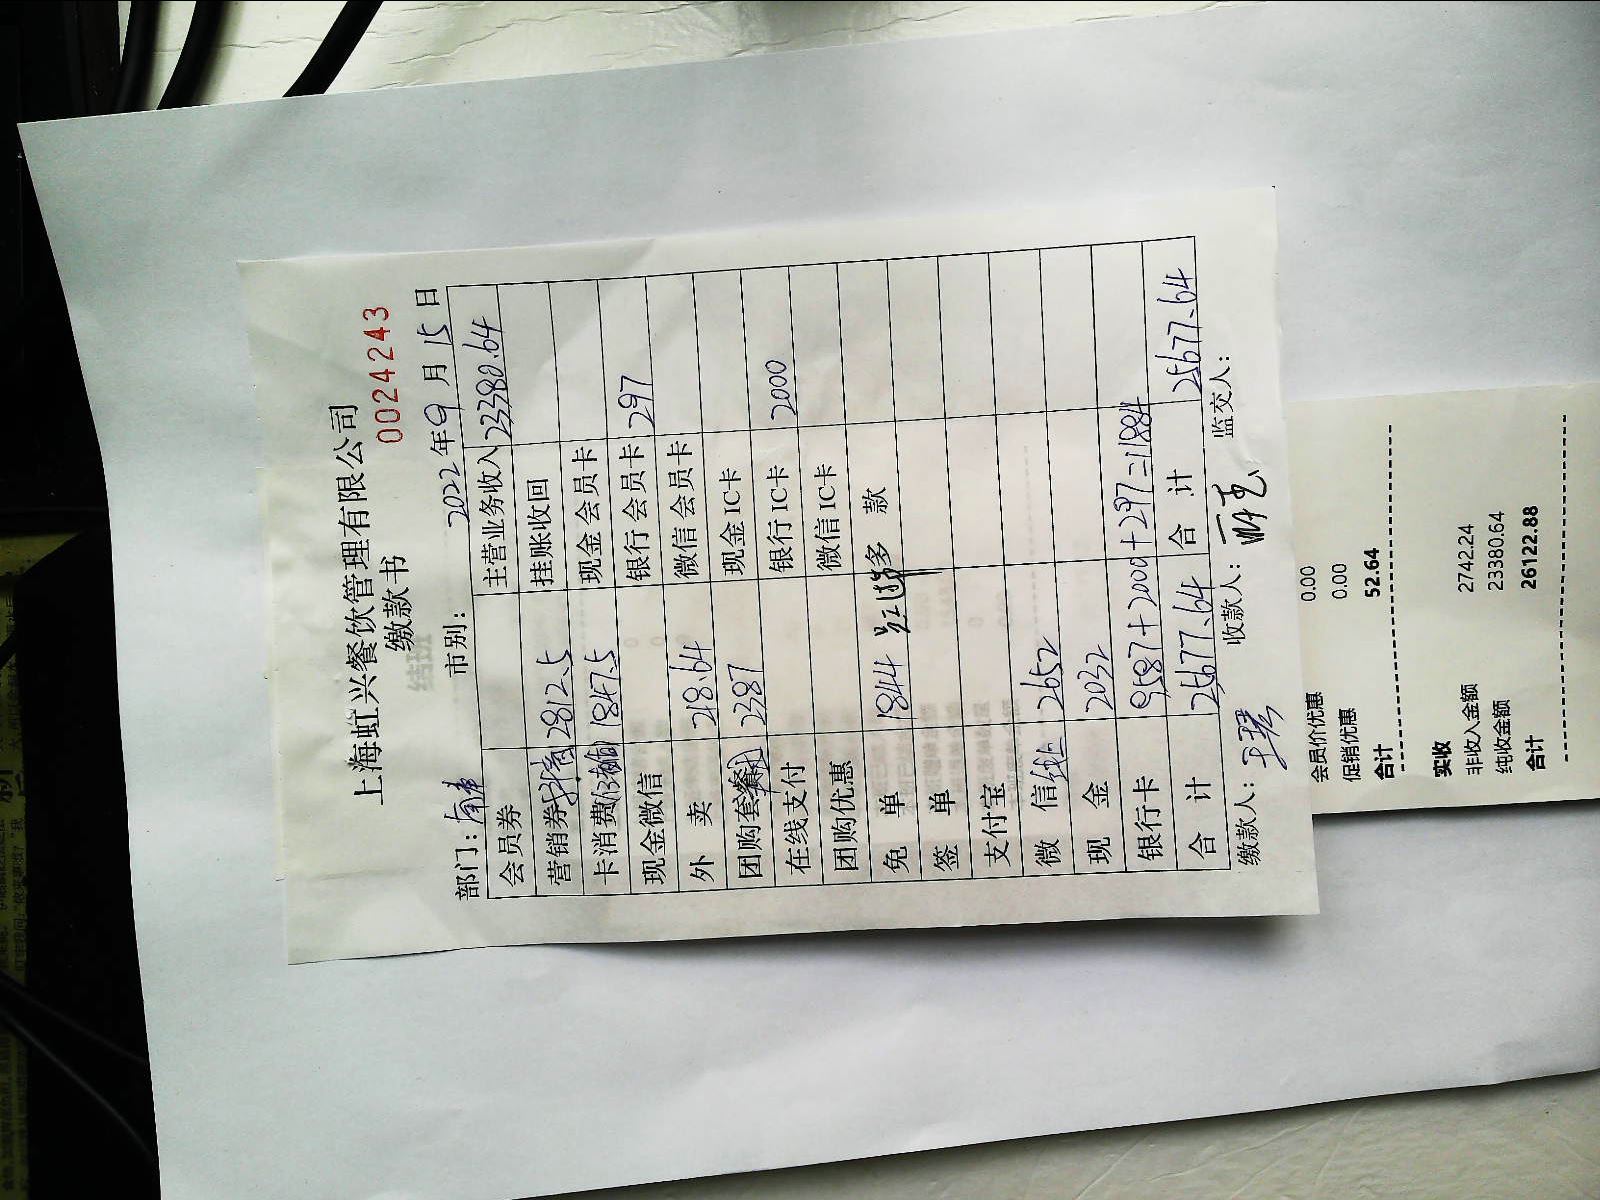 上海虹兴餐饮管理有限公司
缴款书
0024243
部门: 市别: 2022年9月15日
会员券 主营业务收入 23380.64
营销券 2812.5 挂账收回
卡消费 1847.5 现金会员卡
现金微信 银行会员卡 297
外 卖 218.64 微信会员卡
团购套餐 2387 现金IC卡
在线支付 银行IC卡 2000
团购优惠 微信IC卡
免 单 1844 多 款
签 单
支付宝
微 信 2652
现 金 2032
银行卡 9587+2000+297=11884
合 计 25677.64 合 计 25677.64
缴款人: 收款人: 监交人:
会员价优惠 0.00
促销优惠 0.00
合计 52.64
实收
非收入金额 2742.24
纯收金额 23380.64
合计 26122.88